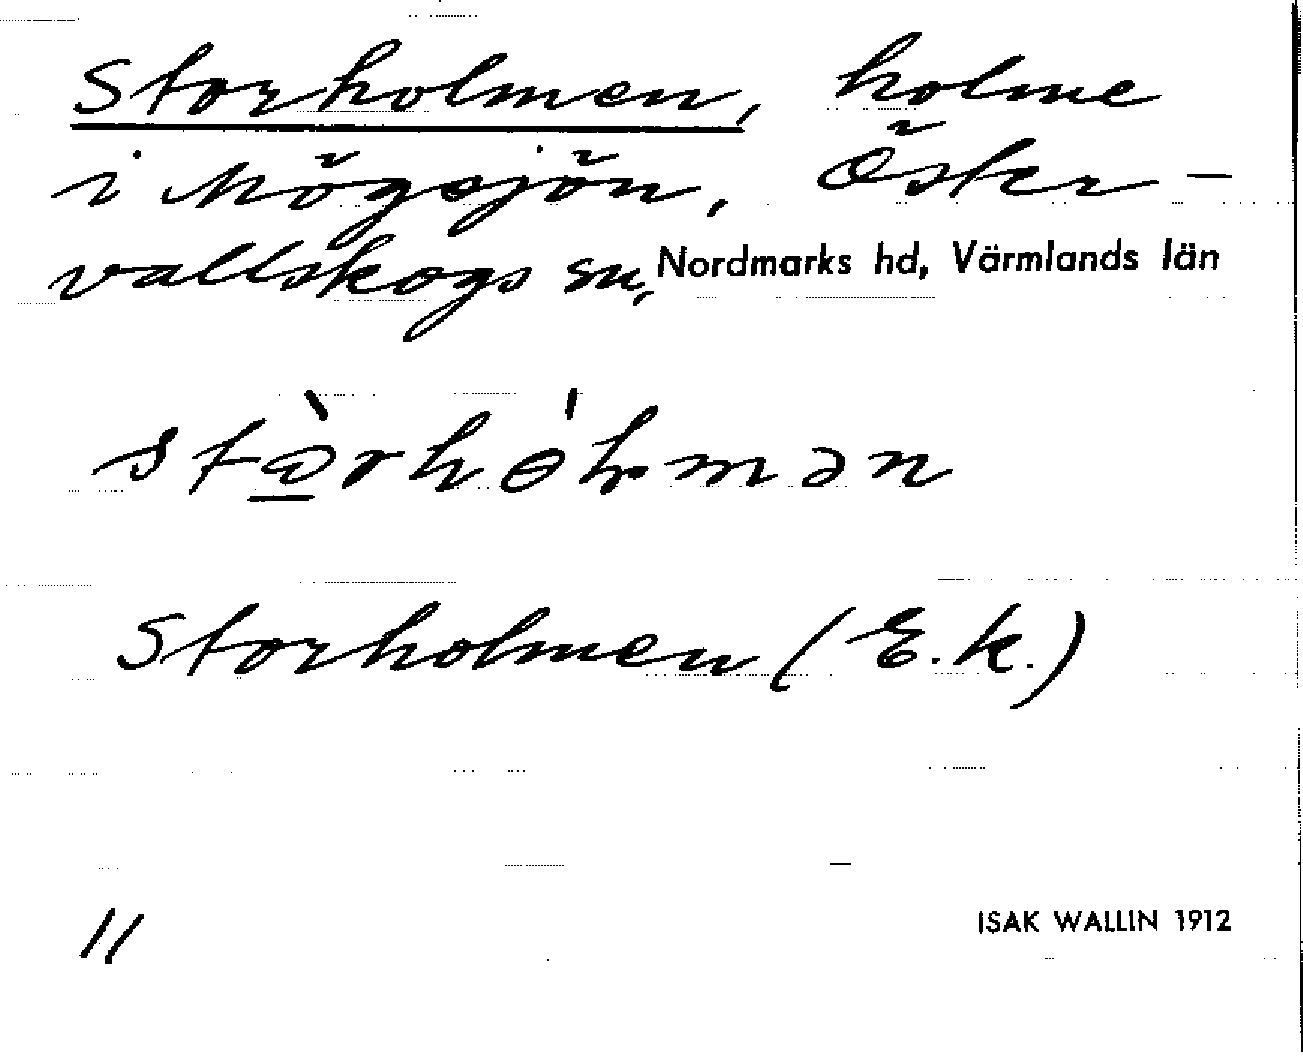 Storholmen, holme
i Mögsjön, Öster-
vallskogs sn, Nordmarks hd, Värmlands län
Storholmen (E.k.)
11 ISAK WALLIN 1912